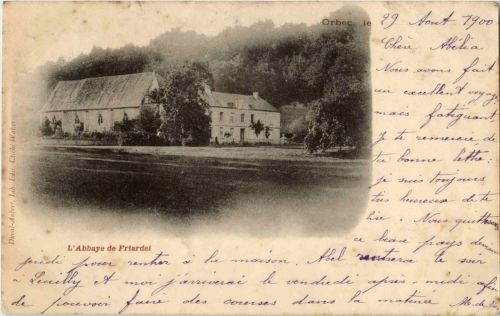 Orbec, le 29 Août 1900
Chère Abélia
Nous avons fait
un excellent voyage
mais fatiguant
Je te remercie de
ta bonne lettre.
je suis toujours
très heureux de te
lire. Nous quittons
ce beau pays demain
jeudi pour rentrer à la maison. Abel rentrera le soir
à Neuilly et moi j'arriverai le vendredi après-midi afin
de pouvoir faire des courses dans la matinée M. de
L'Abbaye de Friardel